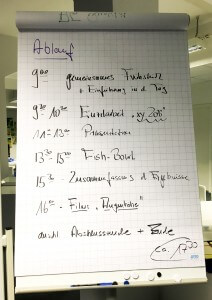 Ablauf
9⁰⁰ gemeinsames Frühstück
+ Einführung in d Tag
9³⁰ - 10³⁰ Einzelarbeit
11 - 13⁰⁰ Präsentation
13³⁰ - 15⁰⁰ Fish-Bowl
15³⁰ - Zusammenfassung d Ergebnisse
16⁰⁰ - Film "Augenhöhe"
anschl Abschlussrunde + Ende
ca. 17⁰⁰